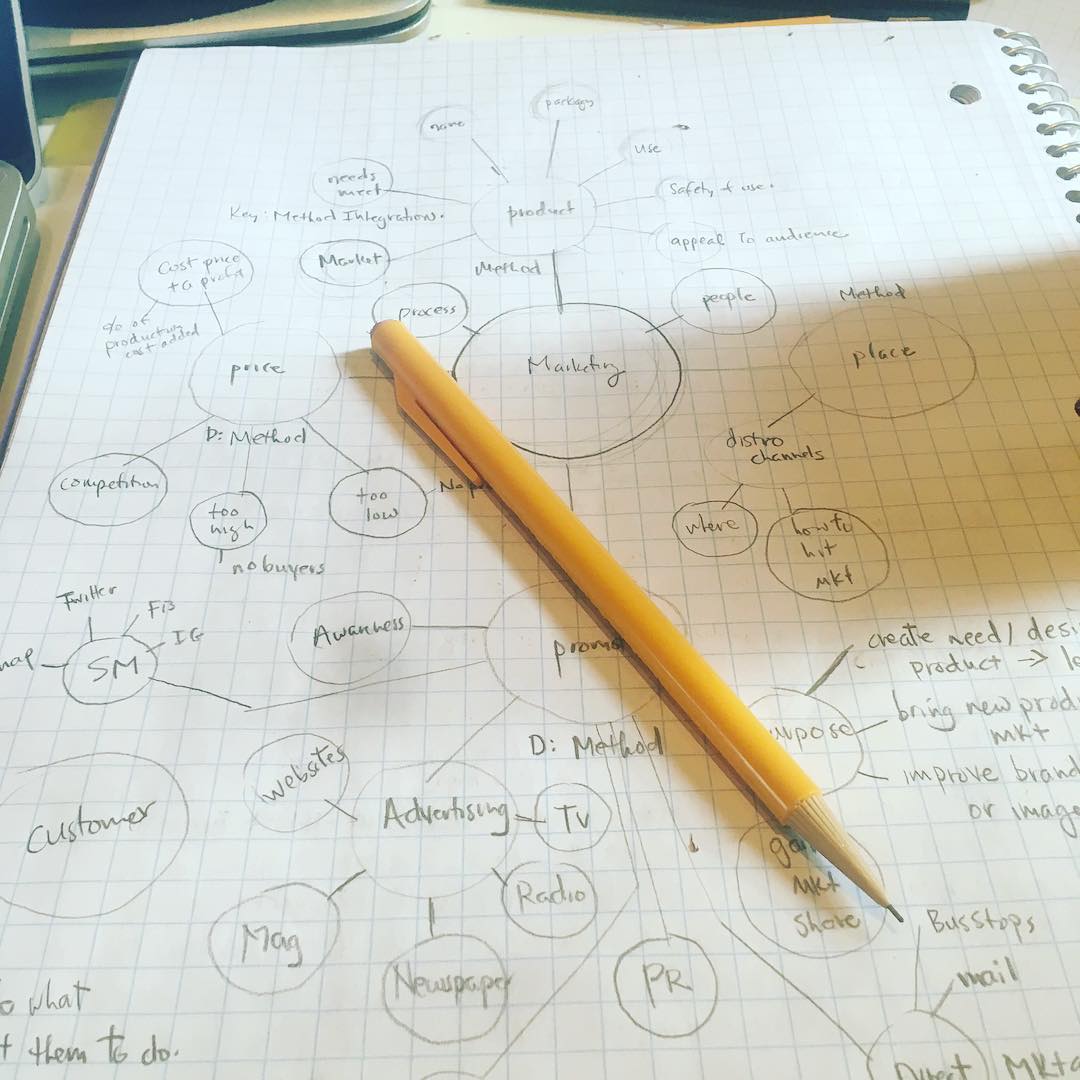 name
package
use
needs
meet
safety of use.
Key: Method Integration.
product
appeal to audience
Market
Method
cost price
+ a profit
process
people
Method
% of
production
cost added
price
Marketing
place
D: Method
distro
channels
competition
too
high
too
low
where
how to
hit
mkt
no buyers
Twitter
FB
IG
SM
Awareness
create need/
product →
purpose
bring new
mkt
D: Method
improve brand
or image
websites
customer
Advertising
TV
Radio
mkt
share
Mag
Newspaper
PR
Bus Stops
mail
what
them to do.
Direct